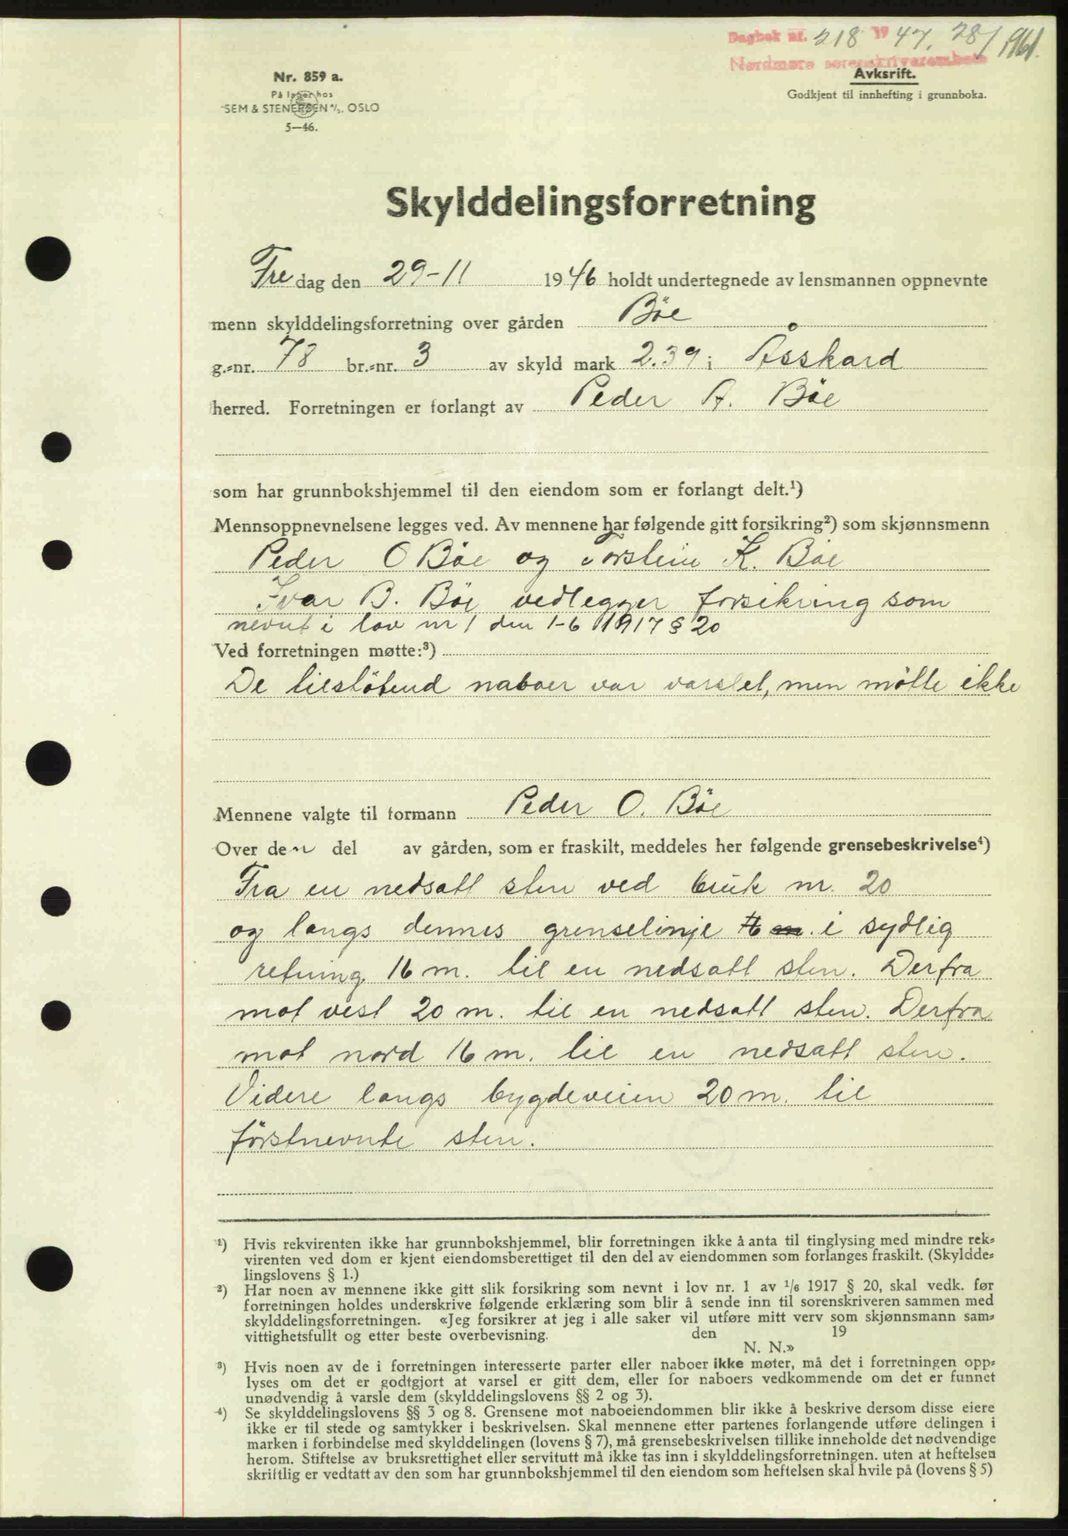 Dagbok nr. 218 1947, 28/1961.
Nordmøre sorenskriverembete
Nr. 859 a.
På lager hos
SEM & STENERSEN A/S. OSLO
5—46.
Avksrift.
Godkjent til innhefting i grunnboka.
Skylddelingsforretning
Fredag den 29-11 1946 holdt undertegnede av lensmannen oppnevnte
menn skylddelingsforretning over gården Böe
g.-nr. 78 br.-nr. 3 av skyld mark 2.39 i Åsskard
herred. Forretningen er forlangt av Peder A. Böe
som har grunnbokshjemmel til den eiendom som er forlangt delt.¹)
Mennsoppnevnelsene legges ved. Av mennene har følgende gitt forsikring²) som skjønnsmenn
Peder O Böe og Torstein K. Böe
Ivar B. Böe vedlegger forsikring som
nevnt i lov nr 1 den 1-6 1917 § 20
Ved forretningen møtte:³)
De tilstötend naboer var varslet, men mötte ikke
Mennene valgte til formann Peder O. Böe
Over den del av gården, som er fraskilt, meddeles her følgende grensebeskrivelse⁴)
Fra en nedsatt sten ved bruk nr. 20
og langs dennes grenselinje 16 m. i sydlig
retning 16 m. til en nedsatt sten. Derfra
mot vest 20 m. til en nedsatt sten. Derfra
mot nord 16 m. til en nedsatt sten.
Videre langs bygdeveien 20 m. til
förstnevnte sten.
¹) Hvis rekvirenten ikke har grunnbokshjemmel, blir forretningen ikke å anta til tinglysing med mindre rek-
virenten ved dom er kjent eiendomsberettiget til den del av eiendommen som forlanges fraskilt. (Skyldde-
lingslovens § 1.)
²) Har noen av mennene ikke gitt slik forsikring som nevnt i lov nr. 1 av 1/6 1917 § 20, skal vedk. før
forretningen holdes underskrive følgende erklæring som blir å sende inn til sorenskriveren sammen med
skylddelingsforretningen. «Jeg forsikrer at jeg i alle saker vil utføre mitt verv som skjønnsmann sam-
vittighetsfullt og etter beste overbevisning. den 19
N. N.»
³) Hvis noen av de i forretningen interesserte parter eller naboer ikke møter, må det i forretningen opp-
lyses om det er godtgjort at varsel er gitt dem, eller for naboers vedkommende om det er funnet
unødvendig å varsle dem (skylddelingslovens §§ 2 og 3).
⁴) Se skylddelingslovens §§ 3 og 8. Grensene mot naboeiendommen blir ikke å beskrive dersom disse eiere
ikke er til stede og samtykker i beskrivelsen. Skal mennene etter partenes forlangende utføre delingen i
marken i forbindelse med skylddelingen (lovens § 7), må grensebeskrivelsen tillike inneholde det nødvendige
herom. Stiftelse av bruksrettighet eller servitutt må ikke tas inn i skylddelingsforretningen. uten at heftelsen
skriftlig er vedtatt av den som har grunnbokshjemmel til den eiendom som heftelsen skal hvile på (lovens § 5)